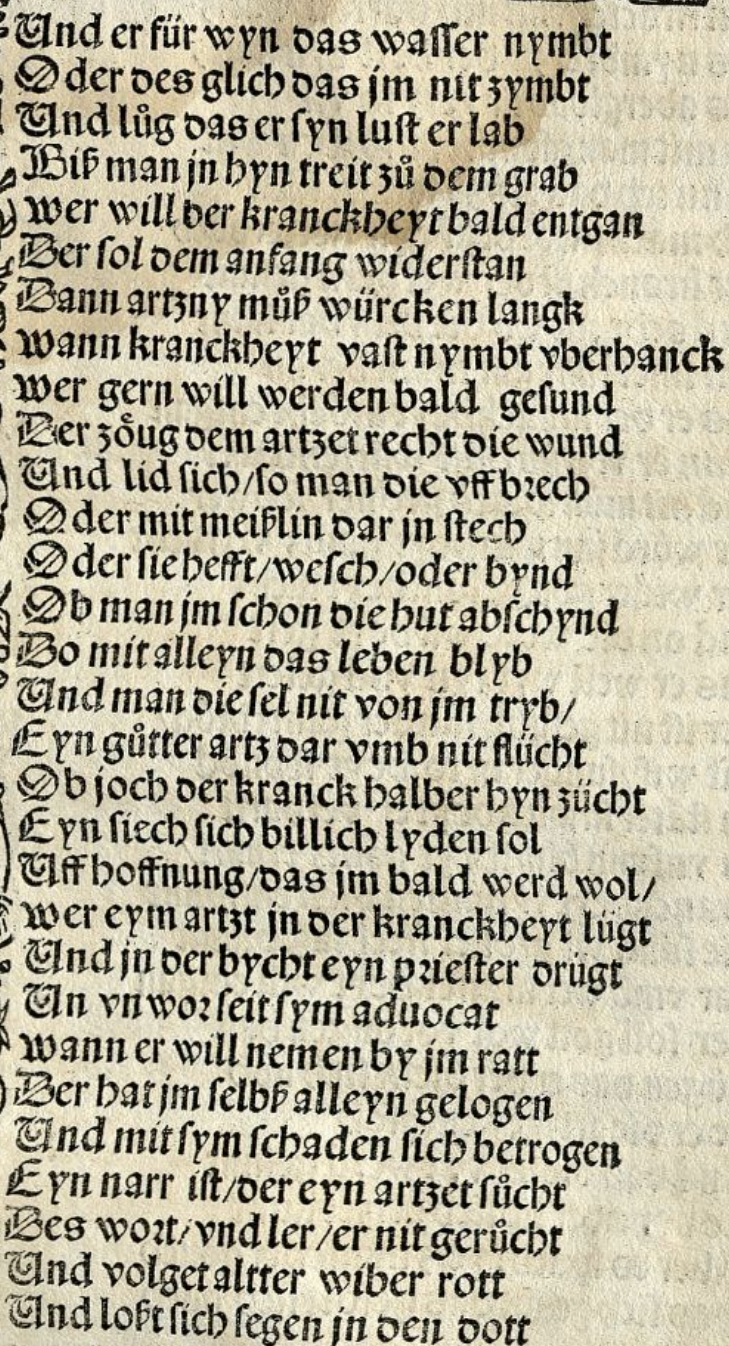 Und er für wyn das waſſer nymbt
Oder des glich das jm nit zymbt
Und lůg das er ſyn luſt er lab
Biß man jn hyn treit zů dem grab
wer will der kranckheyt bald entgan
Der ſol dem anfang widerſtan
Dann artzny můß würcken langk
wann kranckheyt vaſt nymbt vberhanck
wer gern will werden bald geſund
Der zöug dem artzet recht die wund
Und lid ſich/ſo man die vff brech
Oder mit meißlin dar jn ſtech
Oder ſie hefft/weſch/oder bynd
Ob man jm ſchon die hut abſchynd
Do mit alleyn das leben blyb
Und man die ſel nit von jm tryb/
Eyn gůtter artz dar vmb nit flücht
Ob joch der kranck halber hyn zücht
Eyn ſiech ſich billich lyden ſol
Uff hoffnung/das jm bald werd wol/
wer eym artzt jn der kranckheyt lügt
Und jn der bycht eyn prieſter drügt
Un vnwor ſeit ſym aduocat
wann er will nemen by jm ratt
Der hat jm ſelbß alleyn gelogen
Und mit ſym ſchaden ſich betrogen
Eyn narr iſt/der eyn artzet ſůcht
Des wort/vnd ler/er nit gerůcht
Und volget altter wiber rott
Und loßt ſich ſegen jn den dott